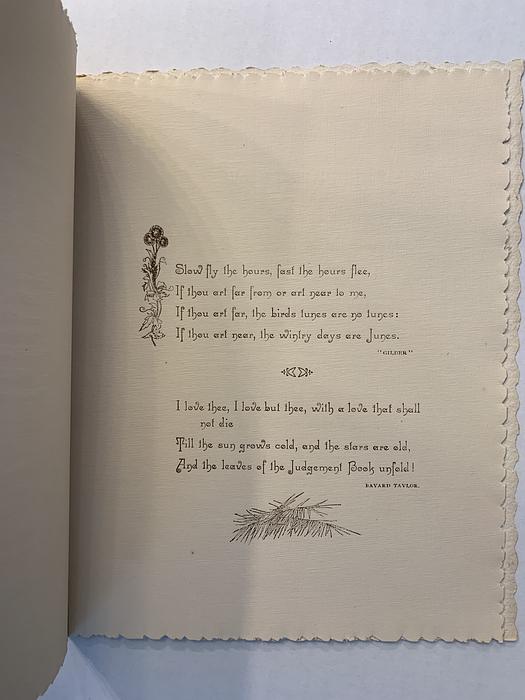 Slow fly the hours, fast the hours flee,
If thou art far from or art near to me,
If thou art far, the birds tunes are no tunes:
If thou art near, the wintry days are Junes.
"GILDER"
I love thee, I love but thee, with a love that shall
not die
Till the sun grows cold, and the stars are old,
And the leaves of the Judgement Book unfold!
BAYARD TAYLOR.